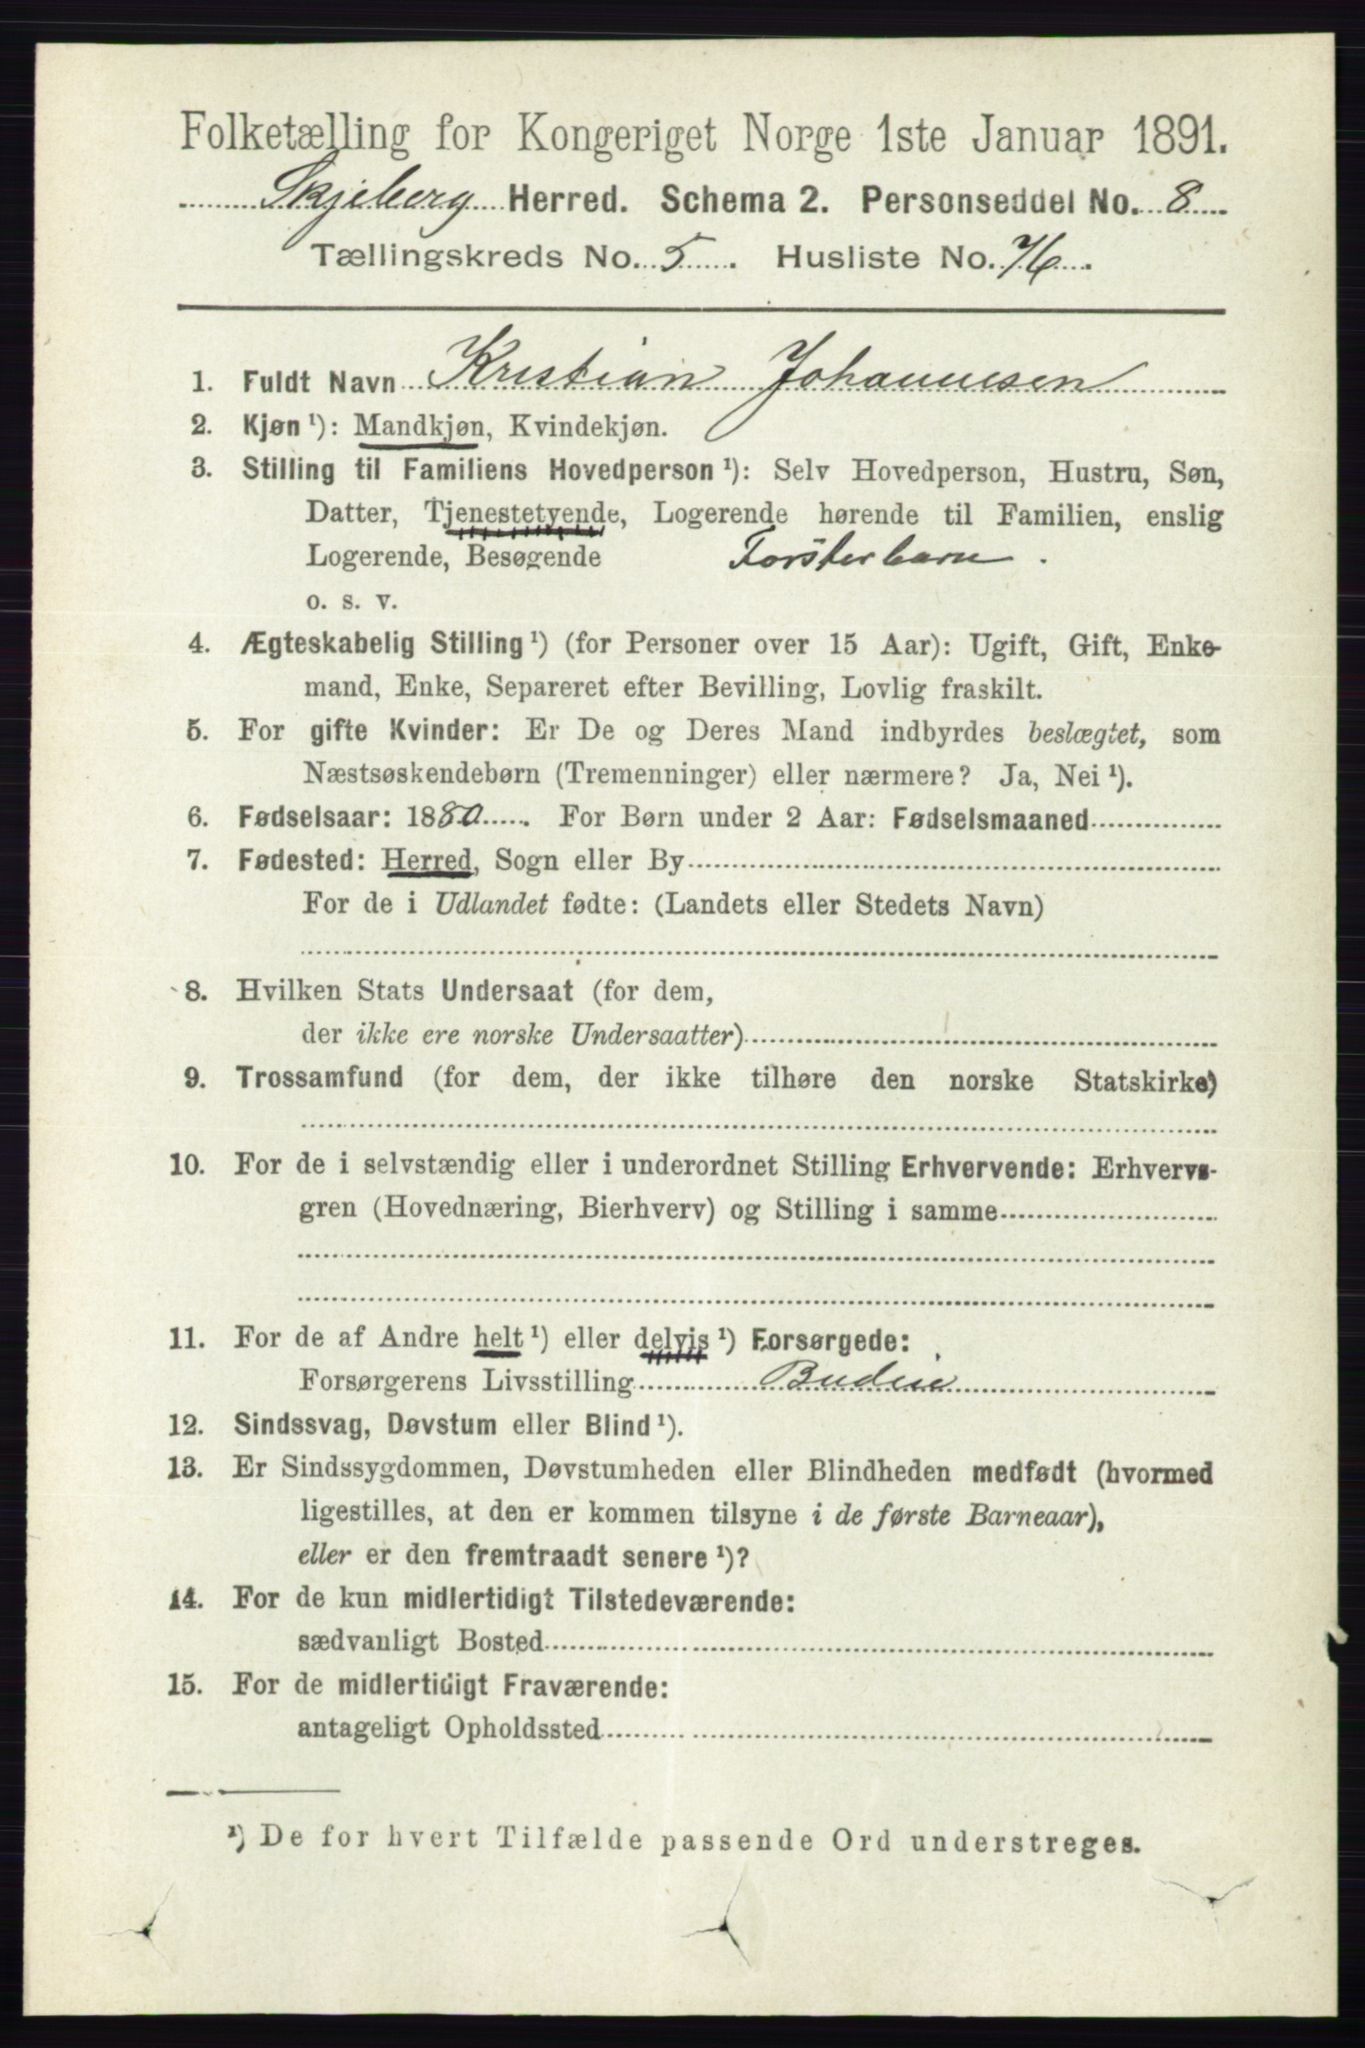 Folketælling for Kongeriget Norge 1ste Januar 1891.
Skjeberg Herred. Schema 2. Personseddel No. 8
Tællingskreds No. 5. Husliste No. 76.
1. Fuldt Navn Kristian Johannesen
2. Kjøn ¹): Mandkjøn, Kvindekjøn.
3. Stilling til Familiens Hovedperson ¹): Selv Hovedperson, Hustru, Søn,
Datter, Tjenestetyende, Logerende hørende til Familien, enslig
Logerende, Besøgende Forsterbarn.
o. s. v.
4. Ægteskabelig Stilling ¹) (for Personer over 15 Aar): Ugift, Gift, Enke-
mand, Enke, Separeret efter Bevilling, Lovlig fraskilt.
5. For gifte Kvinder: Er De og Deres Mand indbyrdes beslægtet, som
Næstsøskendebørn (Tremenninger) eller nærmere? Ja, Nei ¹).
6. Fødselsaar: 1880. For Børn under 2 Aar: Fødselsmaaned
7. Fødested: Herred, Sogn eller By
For de i Udlandet fødte: (Landets eller Stedets Navn)
8. Hvilken Stats Undersaat (for dem,
der ikke ere norske Undersaatter)
9. Trossamfund (for dem, der ikke tilhøre den norske Statskirke)
10. For de i selvstændig eller i underordnet Stilling Erhvervende: Erhvervs-
gren (Hovednæring, Bierhverv) og Stilling i samme
11. For de af Andre helt ¹) eller delvis ¹) Forsørgede:
Forsørgerens Livsstilling Budeie
12. Sindssvag, Døvstum eller Blind ¹).
13. Er Sindssygdommen, Døvstumheden eller Blindheden medfødt (hvormed
ligestilles, at den er kommen tilsyne i de første Barneaar),
eller er den fremtraadt senere ¹)?
14. For de kun midlertidigt Tilstedeværende:
sædvanligt Bosted
15. For de midlertidigt Fraværende:
antageligt Opholdssted
¹) De for hvert Tilfælde passende Ord understreges.